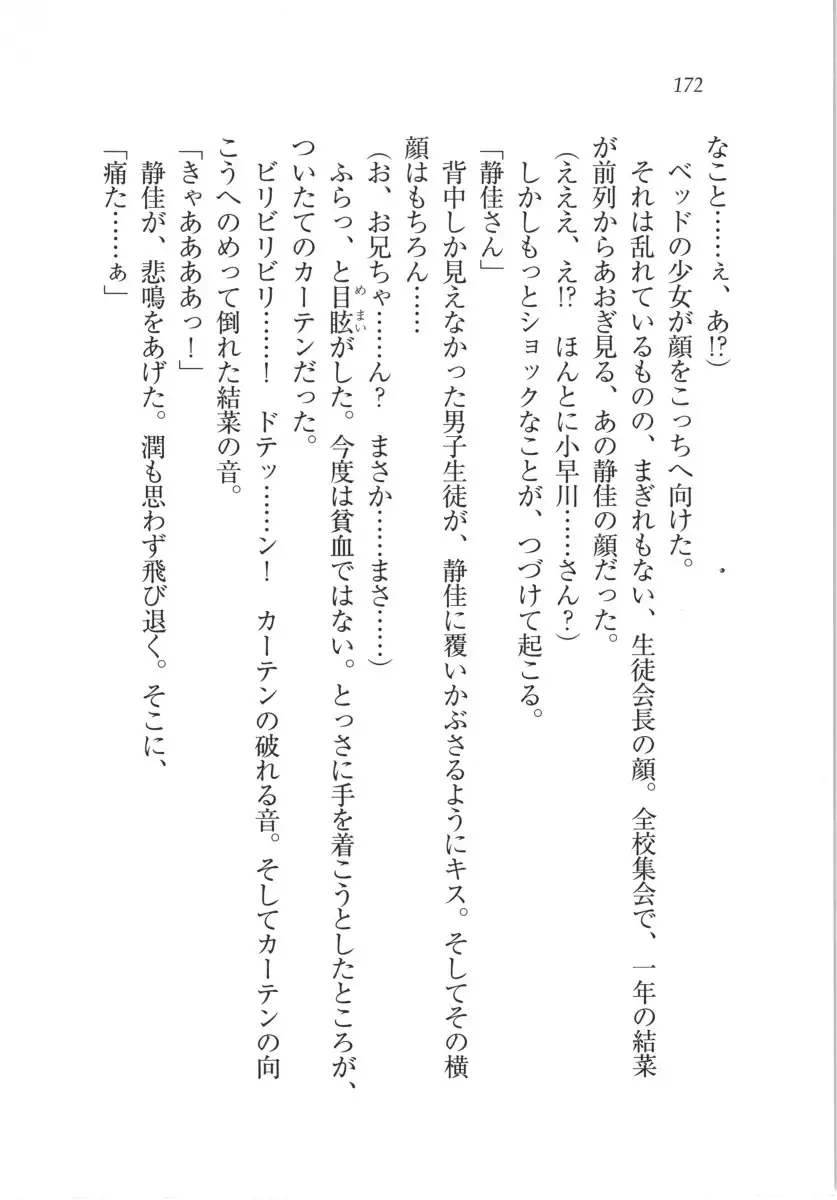 172
なこと……ぇ、あ!?)
ベッドの少女が顔をこっちへ向けた。
それは乱れているものの、まぎれもない、生徒会長の顔。全校集会で、一年の結菜
が前列からあおぎ見る、あの静佳の顔だった。
(えええ、え!?　ほんとに小早川……さん?)
しかしもっとショックなことが、つづけて起こる。
「静佳さん」
背中しか見えなかった男子生徒が、静佳に覆いかぶさるようにキス。そしてその横
顔はもちろん……
(お、お兄ちゃ……ん?　まさか……まさ……)
ふらっ、と目眩がした。今度は貧血ではない。とっさに手を着こうとしたところが、
めまい
ついたてのカーテンだった。
ビリビリビリ……!　ドテッ……ン!　カーテンの破れる音。そしてカーテンの向
こうへのめって倒れた結菜の音。
「きゃああああっ!」
静佳が、悲鳴をあげた。潤も思わず飛び退く。そこに、
「痛た……ぁ」